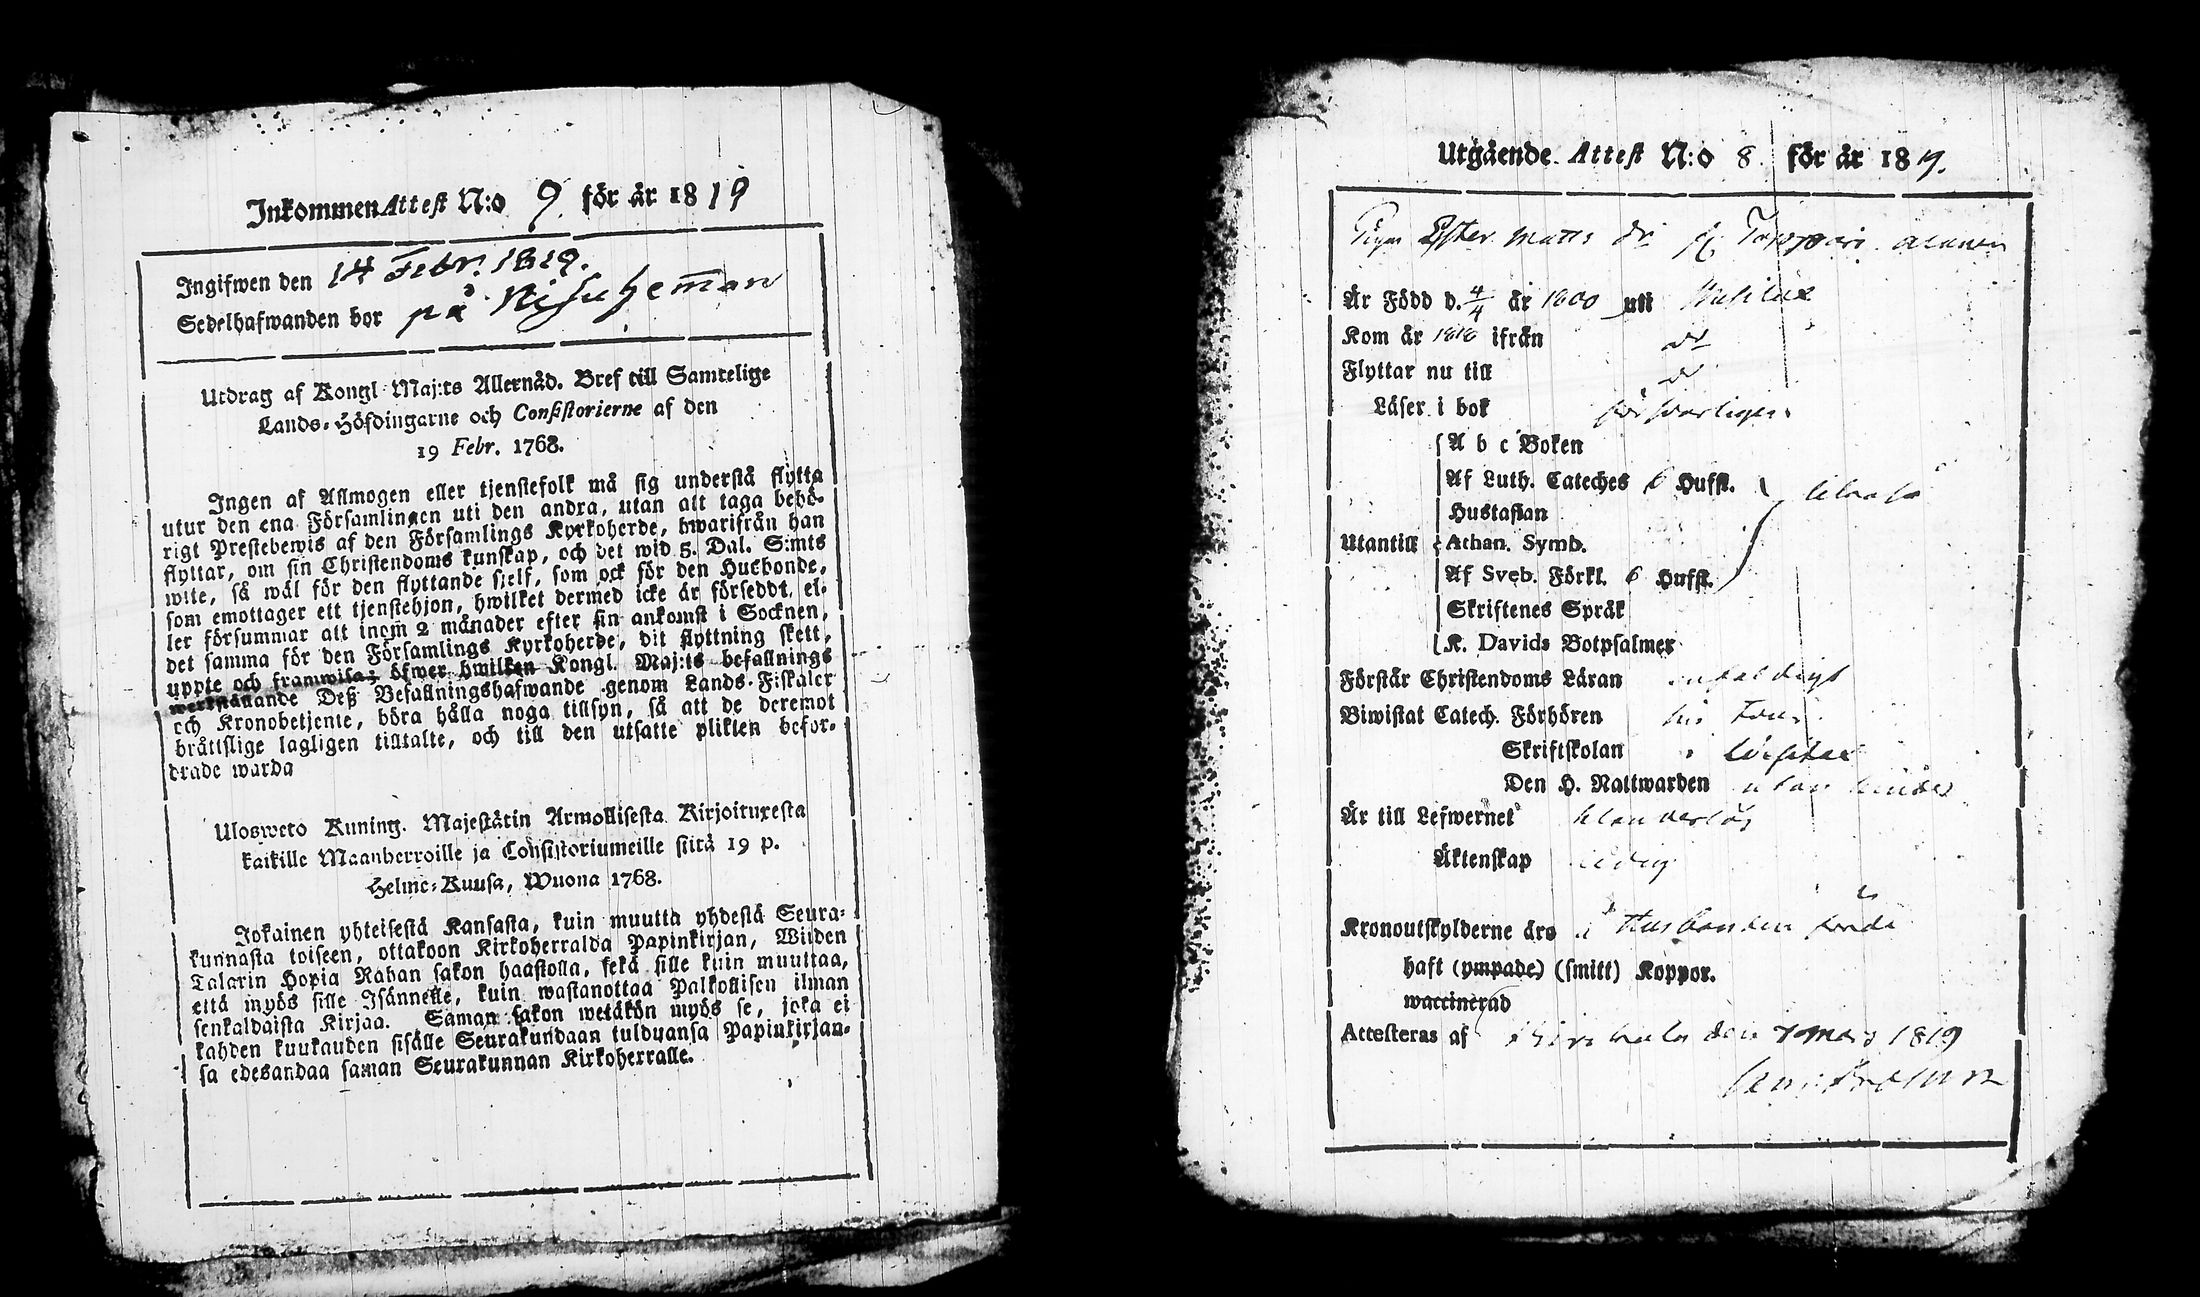 Inkommen Attest N:o 9. för år 1819
Ingifwen den 14 Febr. 1819.
Sedelhafwanden bor på
Utdrag af Kongl. Maj:ts Allernåd. Bref till Samtelige
Lands-Höfdingarne och Consistorierne af den
19 Febr. 1768.
Ingen af Allmogen eller tjenstefolk må sig understå flytta
utur den ena Församlingen uti den andra, utan att taga behö-
rigt Prestebewis af den Församlings Kyrkoherde, hwarifrån han
flyttar, om sin Christendoms kunskap, och det wid 5. Dal. S:mts
wite, så wäl för den flyttande sielf, som ock för den Husbonde,
som emottager ett tjenstehjon, hwilket dermed icke är försedt, el-
ler försummar att inom 2 månader efter sin ankomst i Socknen,
det samma för den Församlings Kyrkoherde, dit flyttning skett,
uppte och framwisa; öfwer hwilken Kongl. Maj:ts befallnings
werkställande Deß Befallningshafwande genom Lands-Fiskaler
och Kronobetjente, böra hålla noga tillsyn, så att de deremot
bråttslige lagligen tilltalte, och till den utsatte plikten befor-
drade warda
Ulosweto Kuning. Majestätin Armollisesta Kirjoituxesta
kaikille Maanherroille ja Consistoriumeille siitä 19 p.
Helme-Kuusa, Wuona 1768.
Jokainen yhteisestä Kansasta, kuin muutta yhdestä Seura-
kunnasta toiseen, ottakoon Kirkoherralda Papinkirjan, Wiiden
Talarin Hopia Rahan sakon haastolla, sekä sille kuin muuttaa,
että myös sille Isännelle, kuin wastanottaa Palkollisen ilman
senkaldaista Kirjaa. Saman sakon wetäkön myös se, joka ei
kahden kuukauden sisälle Seurakundaan tulduansa Papinkirjan-
sa edesandaa saman Seurakunnan Kirkoherralle.
Utgående Attest N:o 8. för år 1819.
Pigan Ester Matts dr fr Toppari
Är Född d. 4/4 år 1800 uti
Kom år 1818 ifrån do
Flyttar nu till do
Läser i bok försvarligen
A b c Boken
Af Luth. Cateches 6 Hufst.
Hustaflan
Utantill Athan. Symb.
Af Sveb. Förkl. 6 Hufst.
Skriftenes Språk
K. Davids Botpsalmer
Förstår Christendoms Läran enfaldigt
Biwistat Catech. Förhören
Skriftskolan
Den H. Nattwarden utan hinder
Är till Lefwernet klanderlös
Äktenskap ledig
Kronoutskylderne äro å Husbonden förde
haft (ympade) (smitt) Koppor.
waccinerad
Attesteras af den 7 Mars 1819